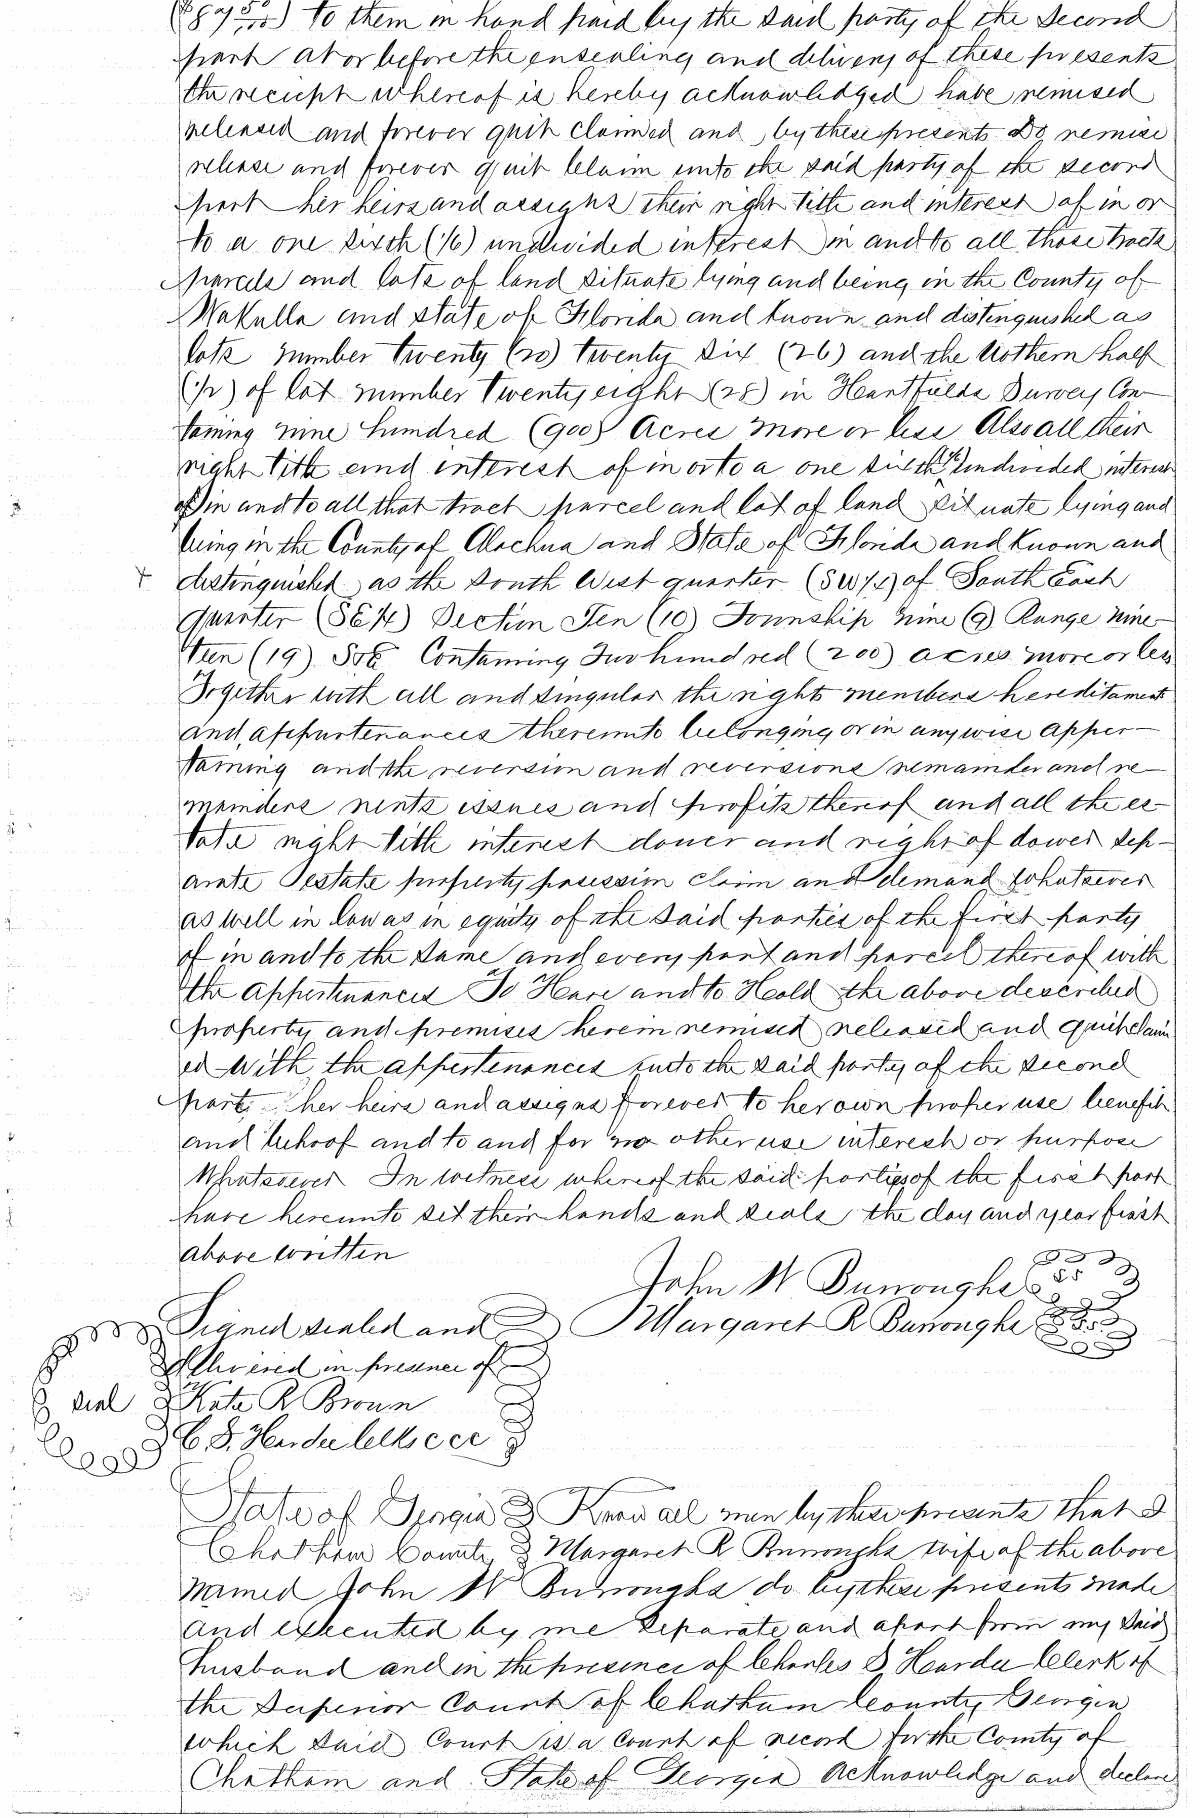 ($87 50/100) to them in hand paid by the said party of the second
part at or before the ensealing and delivery of these presents
the reciept whereof is hereby acknowledged have remised
released and forever quit claimed and by these presents Do remise
release and forever quit Claim unto the said party of the second
part her heirs and assigns their right title and interest of in or
to a one sixth (1/6) undivided interest in and to all those tracts
parcels and lots of land situate lying and being in the County of
Wakulla and state of Florida and known and distinguished as
lots number twenty (20) twenty six (26) and the Nothern half
(1/2) of lot number twenty eight (28) in Hartfields Survey Con-
taining nine hundred (900) Acres more or less Also all their
right title and interest of in or to a one sixth (1/6) undivided interest
of in and to all that tract parcel and lot of land situate lying and
being in the County of Alachua and State of Florida and known and
distinguished as the South West quarter (SW1/4) of South East
quarter (SE1/4) Section Ten (10) Township nine (9) Range nine-
teen (19) S&E Containing Two hundred (200) acres more or less
Together with all and singular the rights members hereditaments
and appurtenances thereunto belonging or in anywise apper-
taining and the reversion and reversions remainder and re-
mainders rents issues and profits thereof and all the es-
tate right title interest dower and right of dower sep-
arate estate property posession claim and demand whatsoever
as well in law as in equity of the said parties of the first party
of in and to the same and every part and parcel thereof with
the appertenances To Have and to Hold the above described
property and premises herein remised released and quit claim
ed with the appertenances unto the said party of the second
part her heirs and assigns forever to her own proper use benefit
and behoof and to and for no other use interest or purpose
Whatsoever In witness whereof the said parties of the first part
have hereunto set their hands and seals the day and year first
above written
John W Burroughs SS
Signed sealed and Margaret R Burroughs SS
delivered in presence of
seal Kate R Brown
C. S. Hardee Clk s c c c
State of Georgia Know all men by these presents that I
Chatham County Margaret R Burroughs wife of the above
named John W Burroughs do by these presents made
and executed by me separate and apart from my said
husband and in the presence of Charles S Hardee Clerk of
the Superior Court of Chatham County Georgia
which said Court is a Court of record for the County of
Chatham and State of Georgia Acknowledge and declare